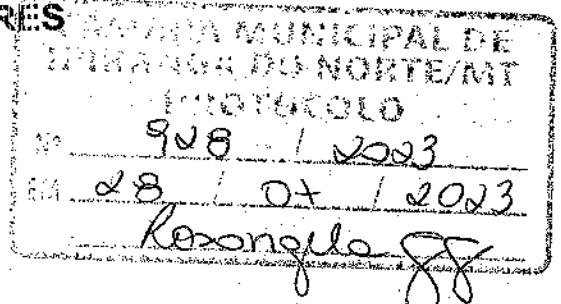 RES
CÂMARA MUNICIPAL DE
IPIRANGA DO NORTE/MT
PROTOCOLO
Nº 928 / 2023
EM 28 / 07 / 2023
Rosangela